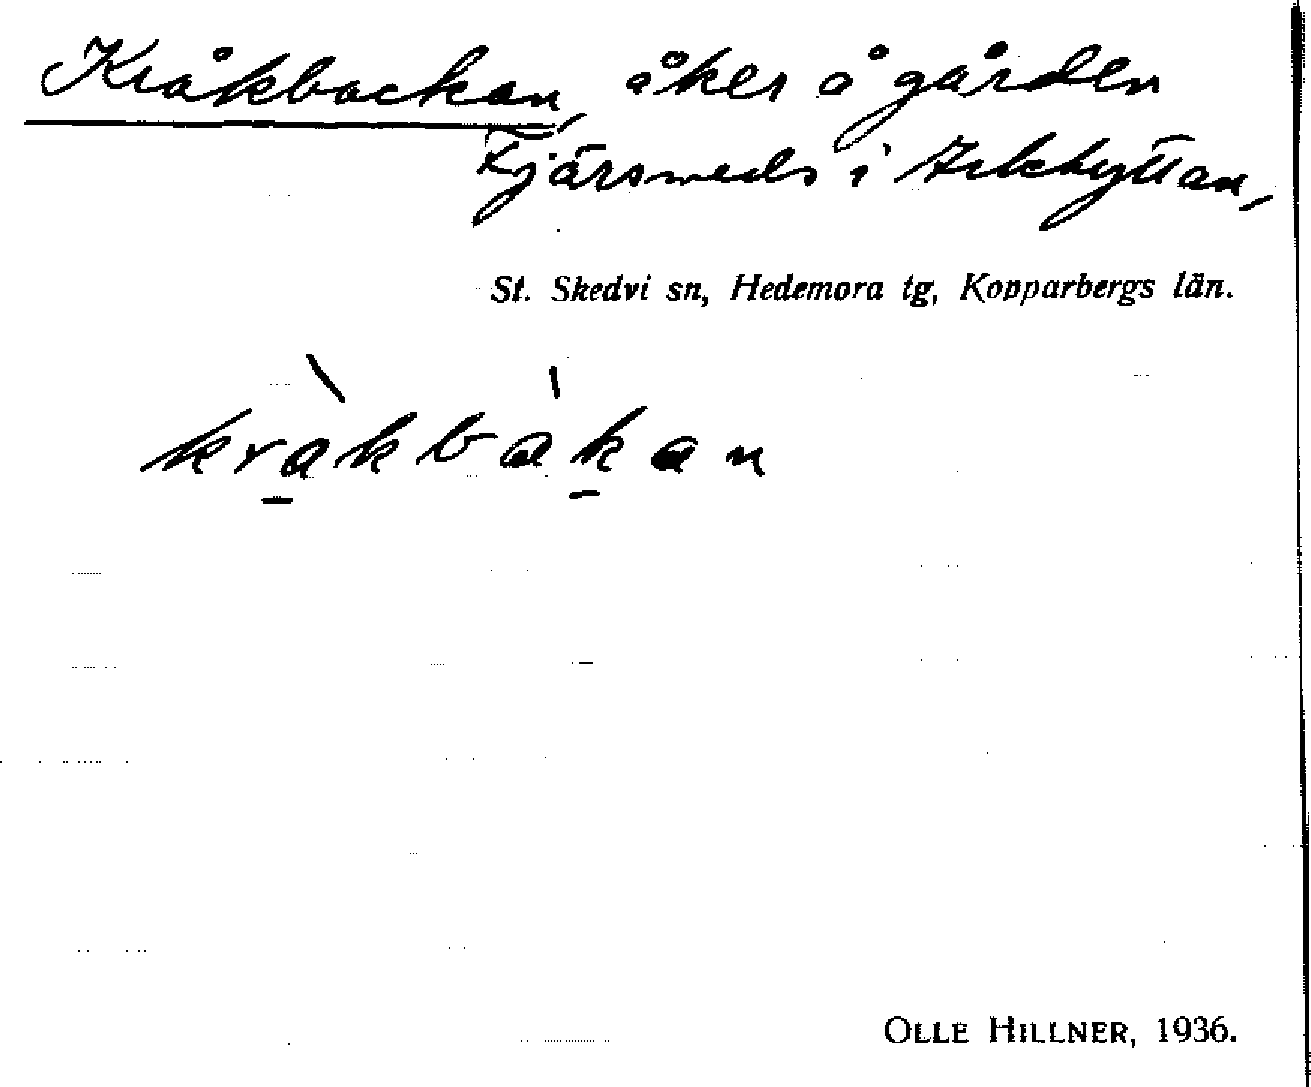 Kråkbackan, åker å gården
Fjärsmeds i Arkhyttan,
St. Skedvi sn, Hedemora tg, Kopparbergs län.
kràkbàkan
OLLE HILLNER, 1936.